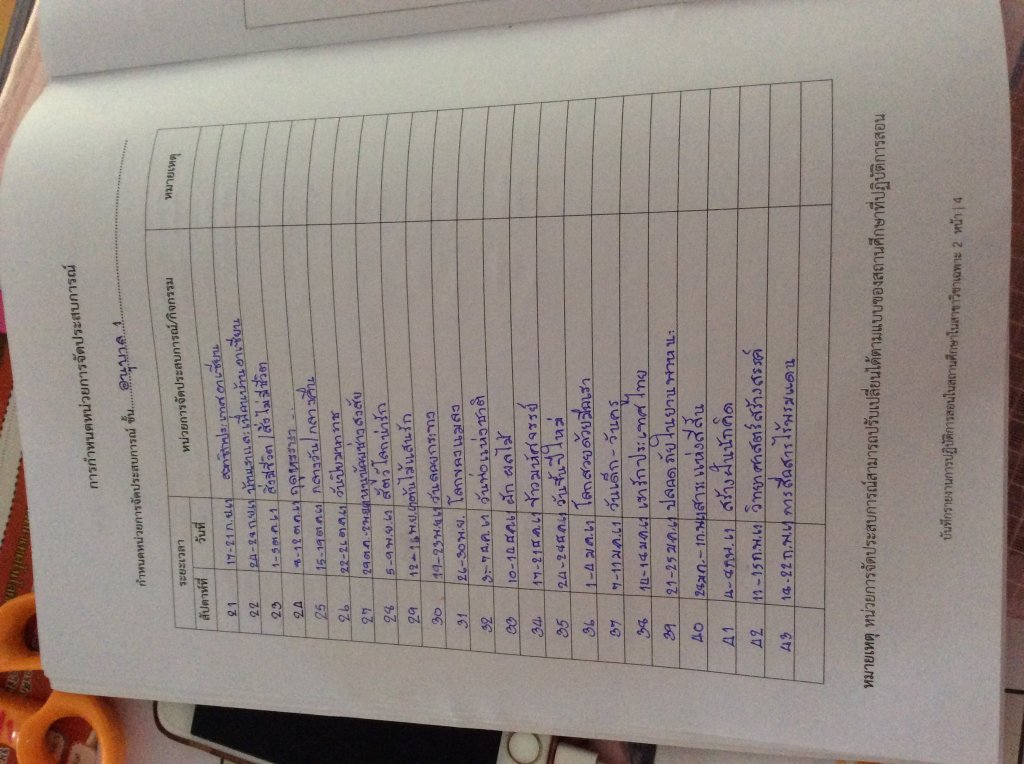 การกำหนดหน่วยการจัดประสบการณ์
กำหนดหน่วยการจัดประสบการณ์ ชั้น......อนุบาล 1......
ระยะเวลา หน่วยการจัดประสบการณ์/กิจกรรม หมายเหตุ
สัปดาห์ที่ วันที่
21 17-21 ก.ย. 61 สมาชิกประเทศอาเซียน
22 24-28 ก.ย. 61 อาเซียน
23 1-5 ต.ค. 61 สิ่งมีชีวิต/สิ่งไม่มีชีวิต
24 8-12 ต.ค. 61
25 15-19 ต.ค. 61 กลางวัน/กลางคืน
26 22-26 ต.ค. 61 วันปิยมหาราช
27 หนูน้อยช่างสงสัย
28 5-9 พ.ย. 61 สัตว์โลกน่ารัก
29 12-16 พ.ย. 61 ต้นไม้แสนรัก
30 19-23 พ.ย. 61 วันลอยกระทง
31 26-30 พ.ย. โลกของแมลง
32 3-7 ธ.ค. 61 วันพ่อแห่งชาติ
33 10-14 ธ.ค. 61 ผัก ผลไม้
34 17-21 ธ.ค. 61 ข้าวมหัศจรรย์
35 24-28 ธ.ค. 61 วันขึ้นปีใหม่
36 1-4 ม.ค. 61 โลกสวยด้วยมือเรา
37 7-11 ม.ค. 61 วันเด็ก-วันครู
38 14-18 ม.ค. 61 เรารักประเทศไทย
39 21-25 ม.ค. 61 ปลอดภัยในยานพาหนะ
40 มหัสสาระแห่งสีสัน
41 4-8 ก.พ. 61 สร้างฝันนักคิด
42 11-15 ก.พ. 61 วิทยาศาสตร์สร้างสรรค์
43 18-22 ก.พ. 61 การสื่อสารไร้พรมแดน
หมายเหตุ หน่วยการจัดประสบการณ์สามารถปรับเปลี่ยนได้ตามแบบของสถานศึกษาที่ปฏิบัติการสอน
บันทึกรายงานการปฏิบัติการสอนในสถานศึกษาในสาขาวิชาเฉพาะ 2 หน้า | 4